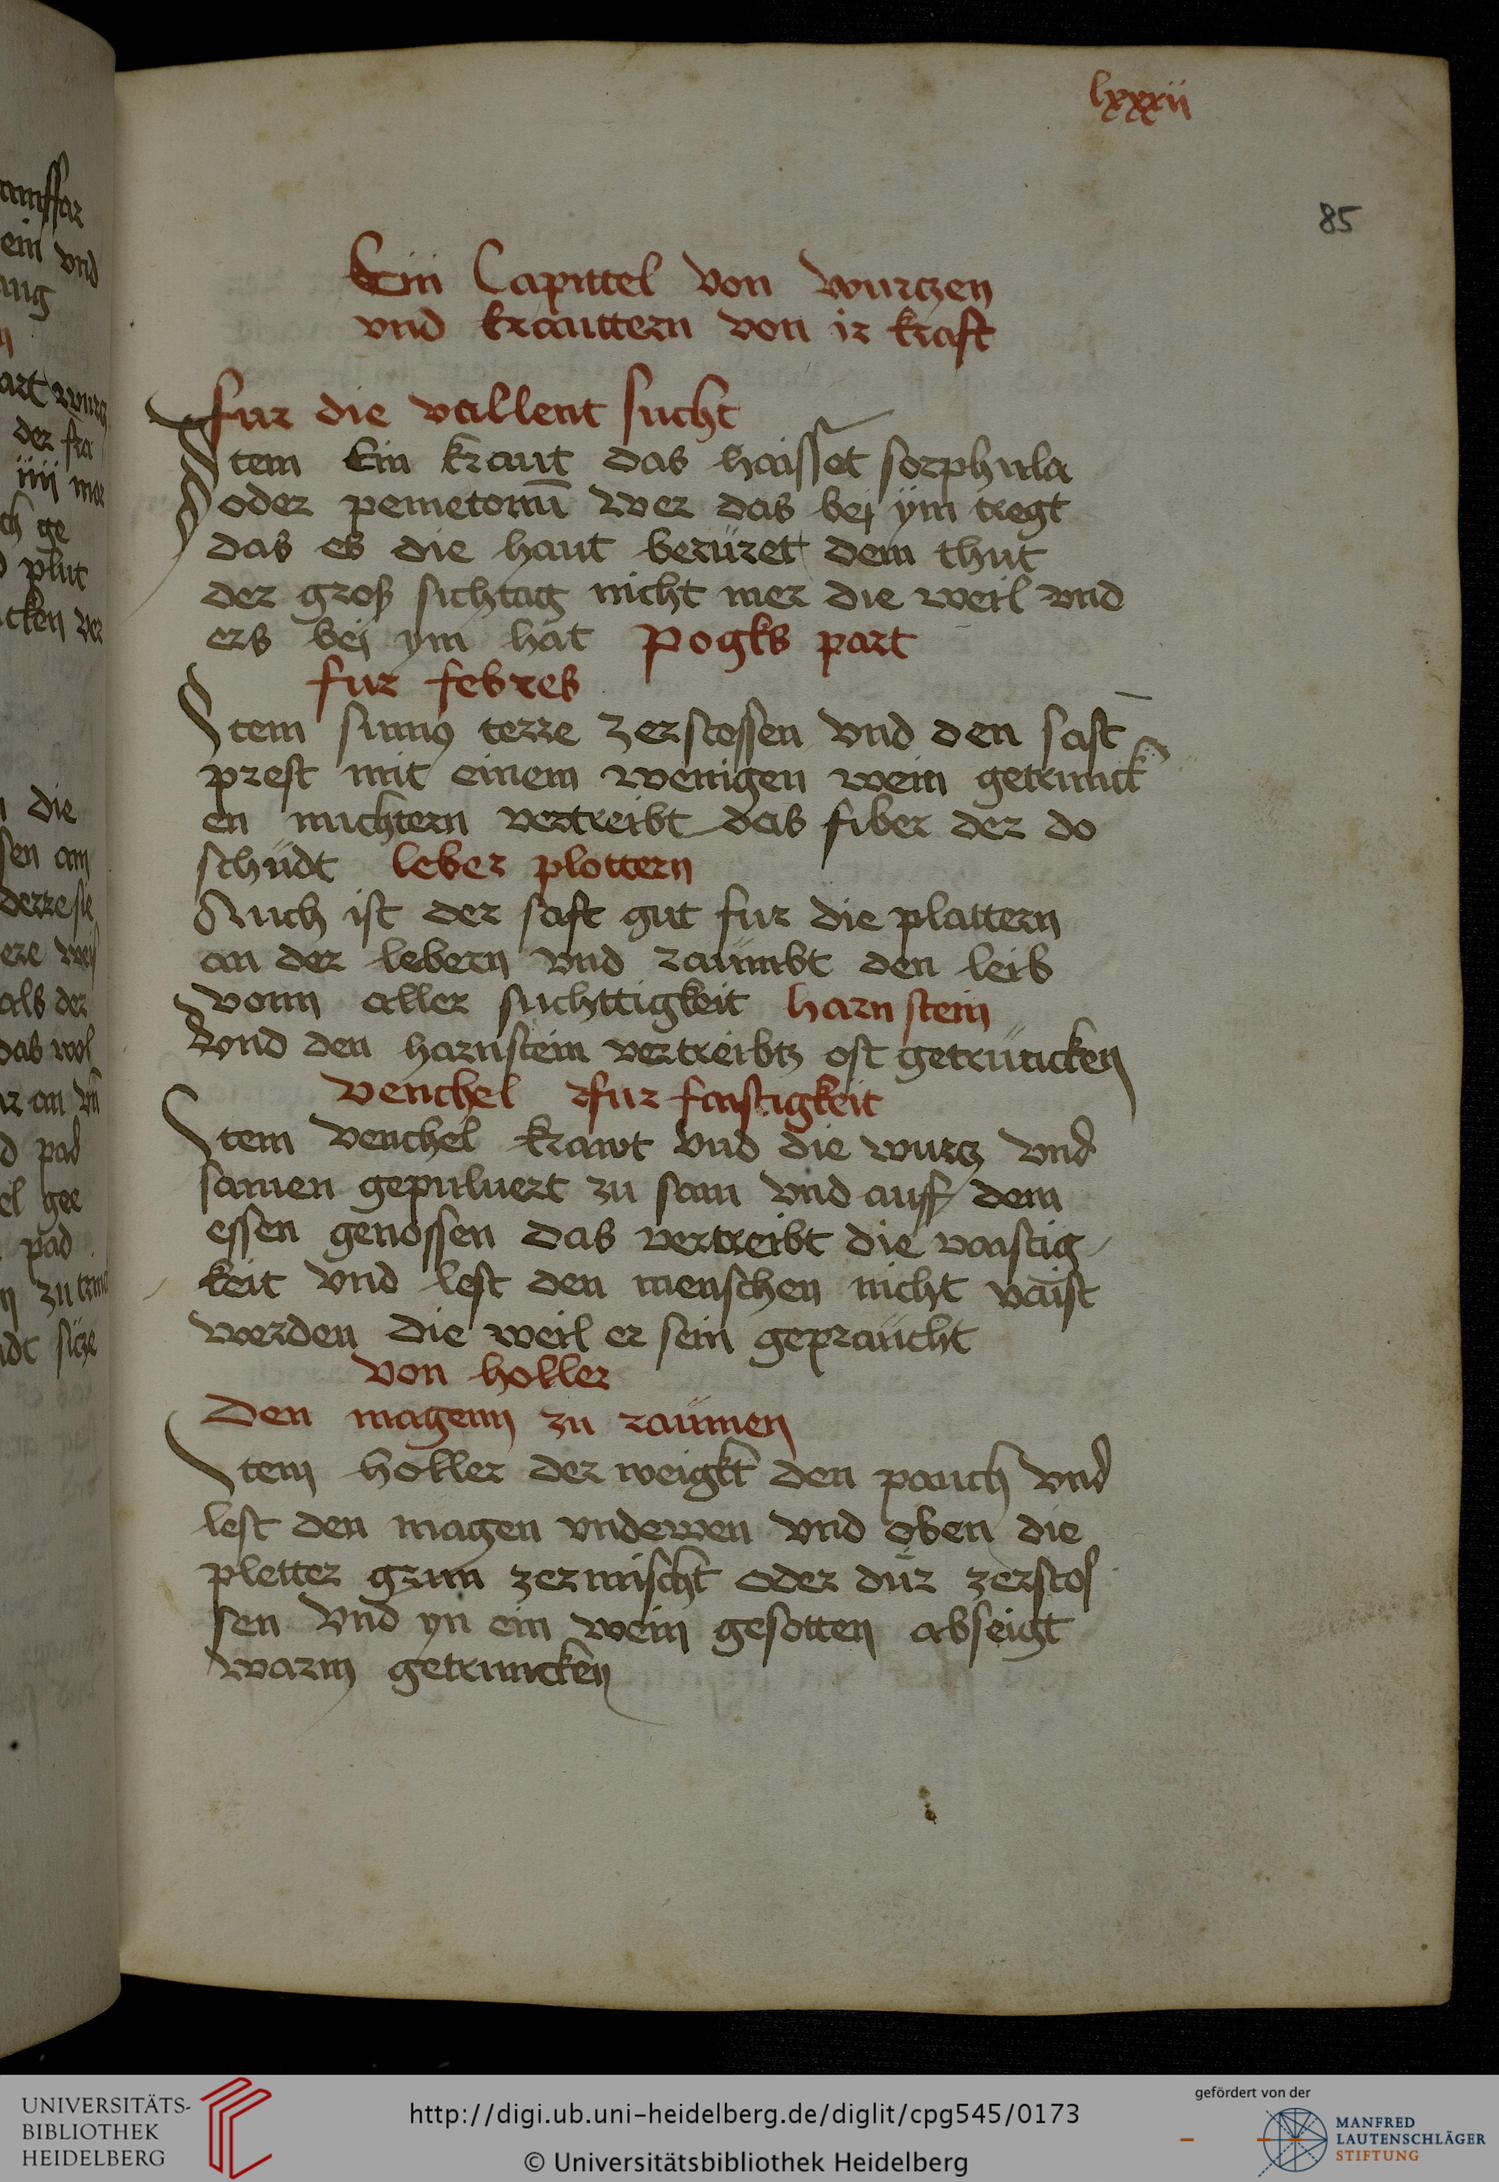 lxxxii
85
Ein Capittel von wurtzen
vnd krauttern von ir kraft
fur die vallent sucht
Item Ein kraut das haisset sorphula
oder pemetomū wer das bej ÿm tregt
das es die haut berüret dem thut
der groß sichtag nicht mer die weil vnd
ers bej ym hat pogks part
fur febres
Item fumus terre zerstossen vnd den saft
prest mit einem wenigen wein getrunck
en nuchtern vertreibt das fiber der do
schüdt leber plottern
Auch ist der saft gut fur die plattern
an der lebern vnd raümbt den leib
vonn aller suchttigkeit harn stein
Vnd den harnstein vertreibtz oft getrüncken
venchel fur faistigkeit
Item venchel krawt vnd die wurtz vnd
samen gepuluert zu sam vnd auff dem
essen genossen das vertreibt die vaistig
keit vnd lest den menschen nicht vaist
werden die weil er sein gepraücht
von holler
Den magenn zu raümen
Item holler der weigkt den pauch vnd
lest den magen vndewen vnd oben die
pletter grun zermischt oder dür zerstos
sen vnd yn ein wein gesotten abseigt
warm getruncken
UNIVERSITÄTS-
BIBLIOTHEK
HEIDELBERG
http://digi.ub.uni-heidelberg.de/diglit/cpg545/0173
© Universitätsbibliothek Heidelberg
gefördert von der
MANFRED
LAUTENSCHLÄGER
STIFTUNG